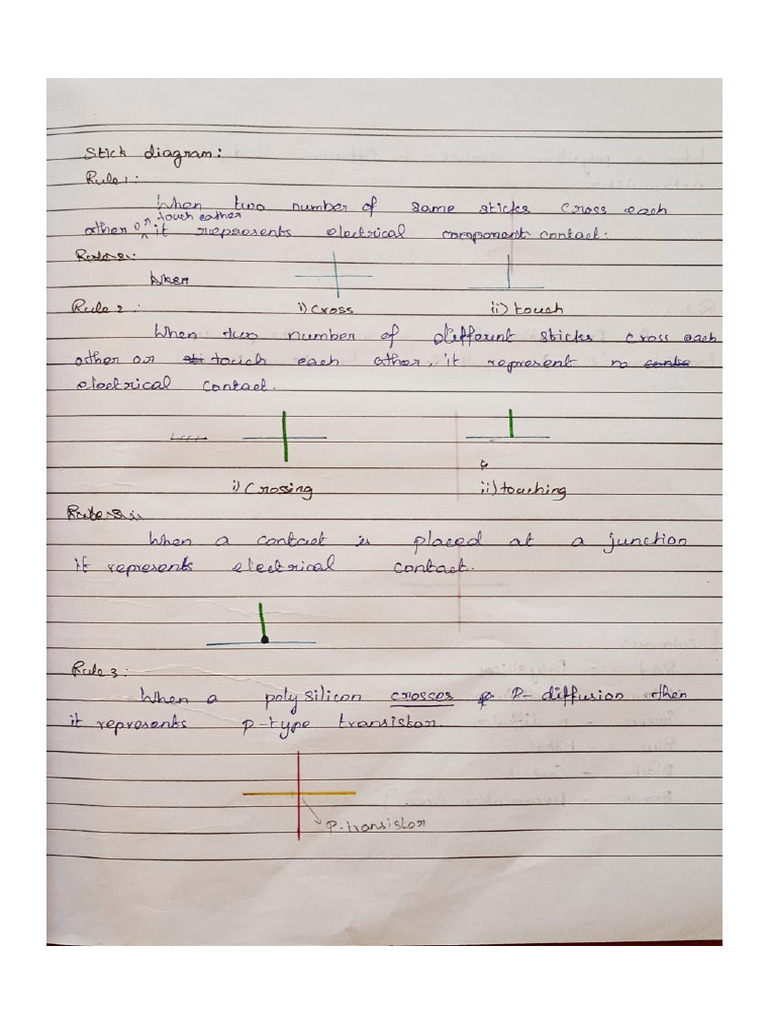 Stick diagram:
Rule 1:
When two number of same sticks cross each
touch eather
other or it represents electrical component contact.
Rule 2:
When
i) Cross ii) touch
Rule 2:
When two number of different sticks cross each
other or sti touch each other, it represent no conta
electrical contact.
i) Crossing ii) touching
Rule 3:
When a contact is placed at a junction
it represents electrical contact.
Rule 3:
When a polysilicon crosses P-diffusion then
it represents P-type transistor.
P-transistor